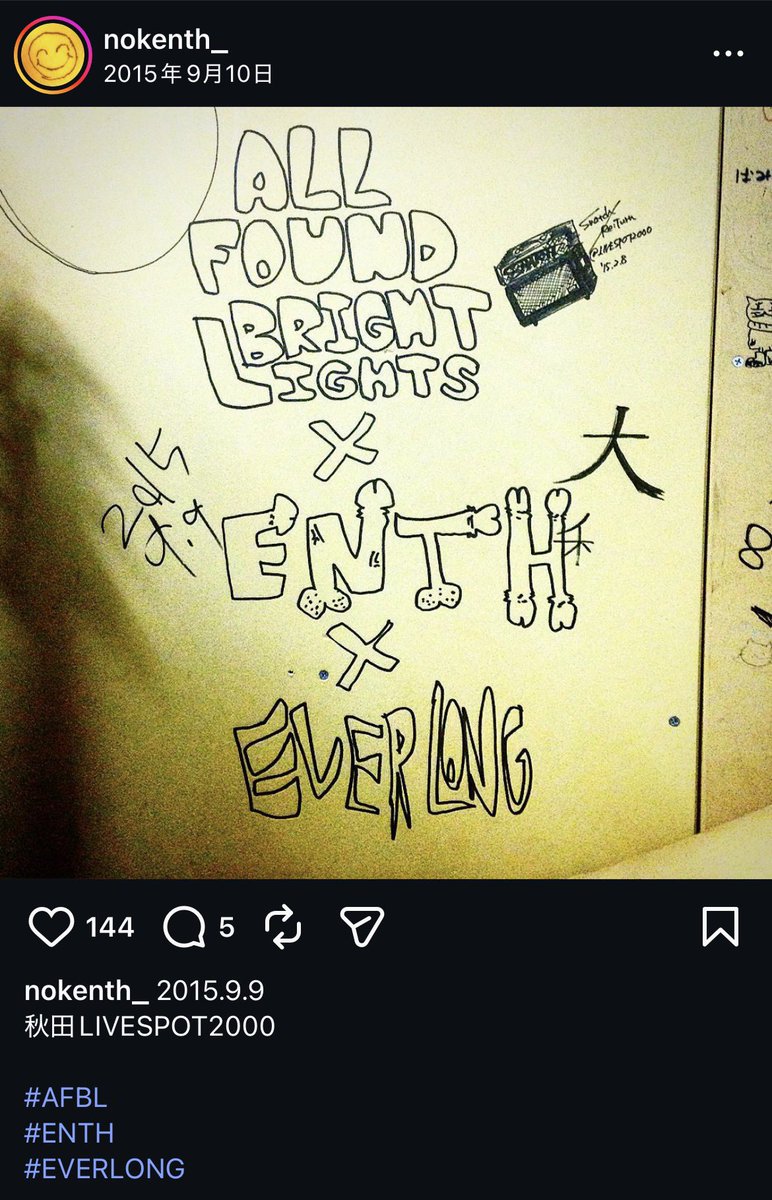 nokenth_
2015年9月10日
ALL
FOUND
BRIGHT
LIGHTS
@LIVESPOT2000
'15.2.8
X
大
2015
9.9
ENTH
X
EVERLONG
144
5
nokenth_ 2015.9.9
秋田LIVESPOT2000
#AFBL
#ENTH
#EVERLONG